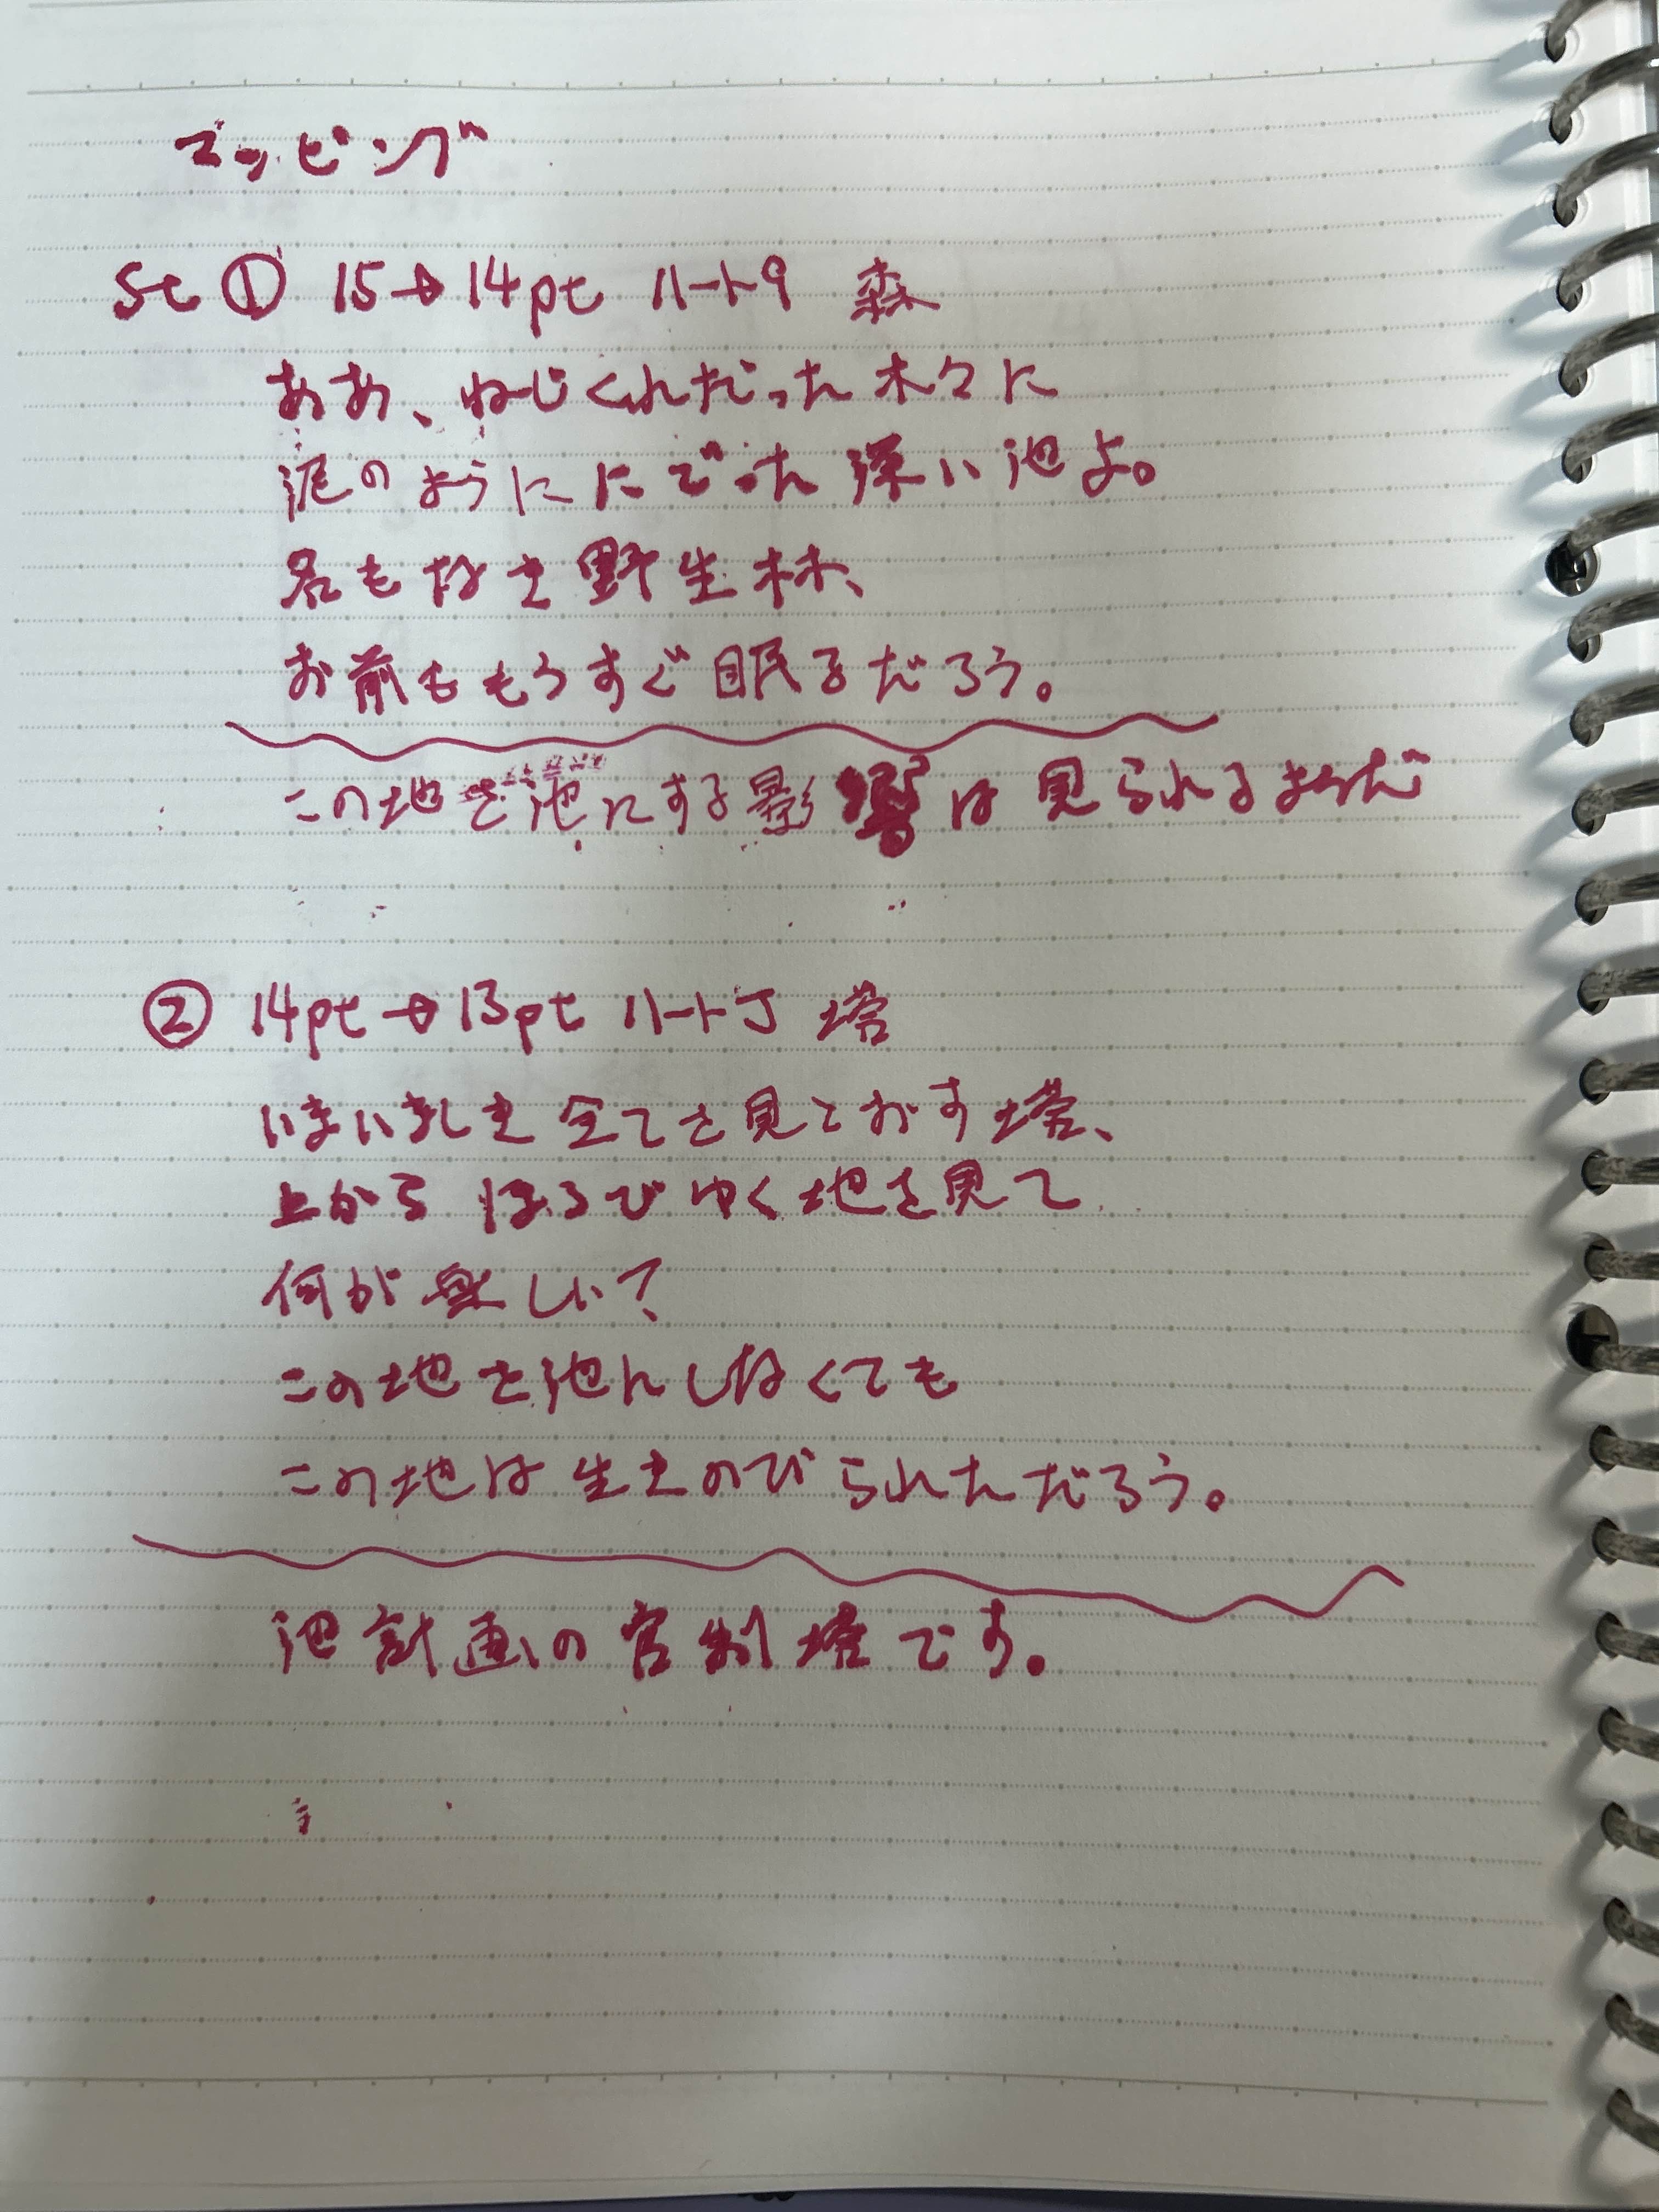 マッピング
St ① 15→14pt ハート9 森
ああ、ねじくれだった木々に
泥のようににごった深い池よ。
名もなき野生林、
お前ももうすぐ眠るだろう。
この地を池にする影響は見られるようだ
② 14pt→13pt ハートJ 塔
いまいましき全てを見とおす塔、
上からほろびゆく地を見て
何が楽しい?
この地を池にしなくても
この地は生きのびられただろう。
池計画の官制塔です。